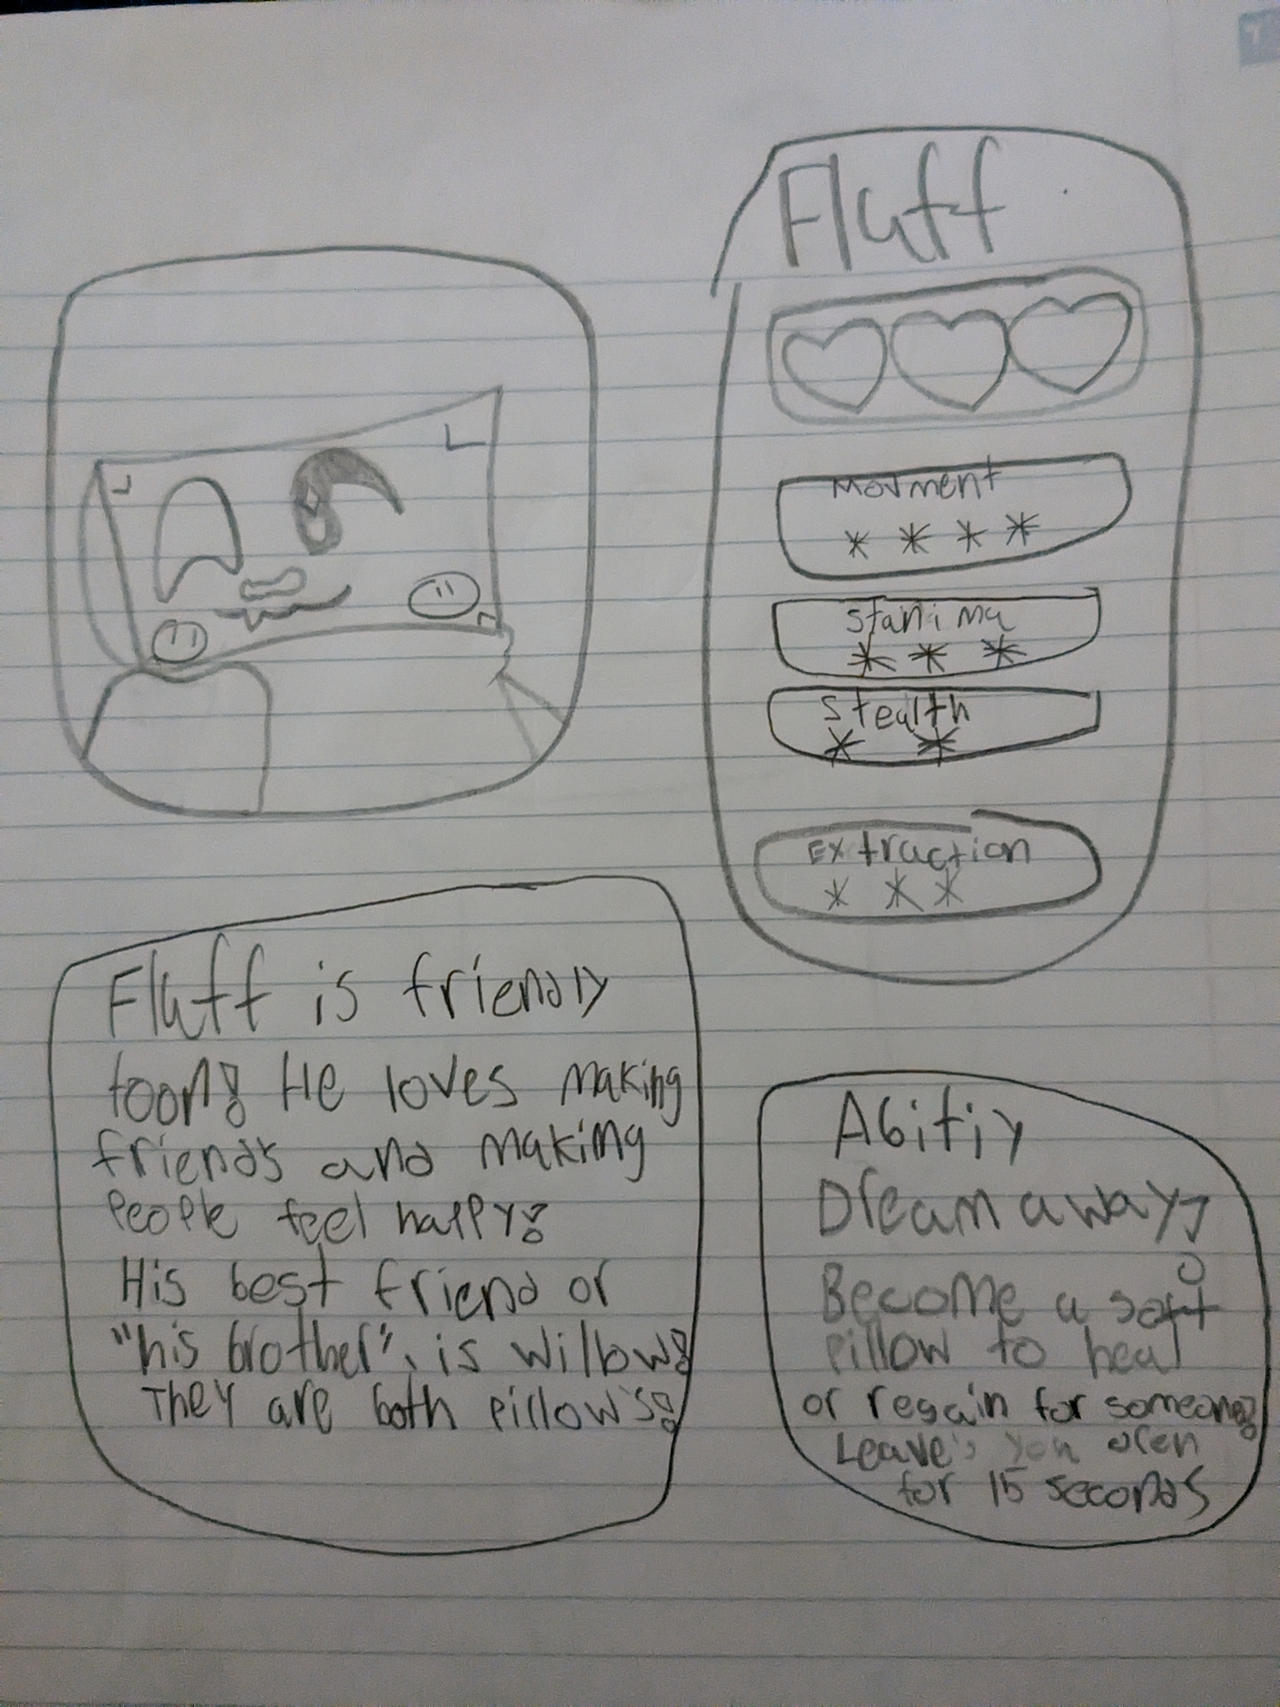 Fluff
Movment
* * * *
Stanima
* * *
Stealth
* *
Extraction
* * *
Fluff is friendly
toon! He loves making
friends and making
People feel happy!
His best friend or
"his brother", is Willow!
They are both pillow's!
Abitiy
Dream away
Become a soft
pillow to heal
or regain for someone!
Leave's you open
for 15 seconds